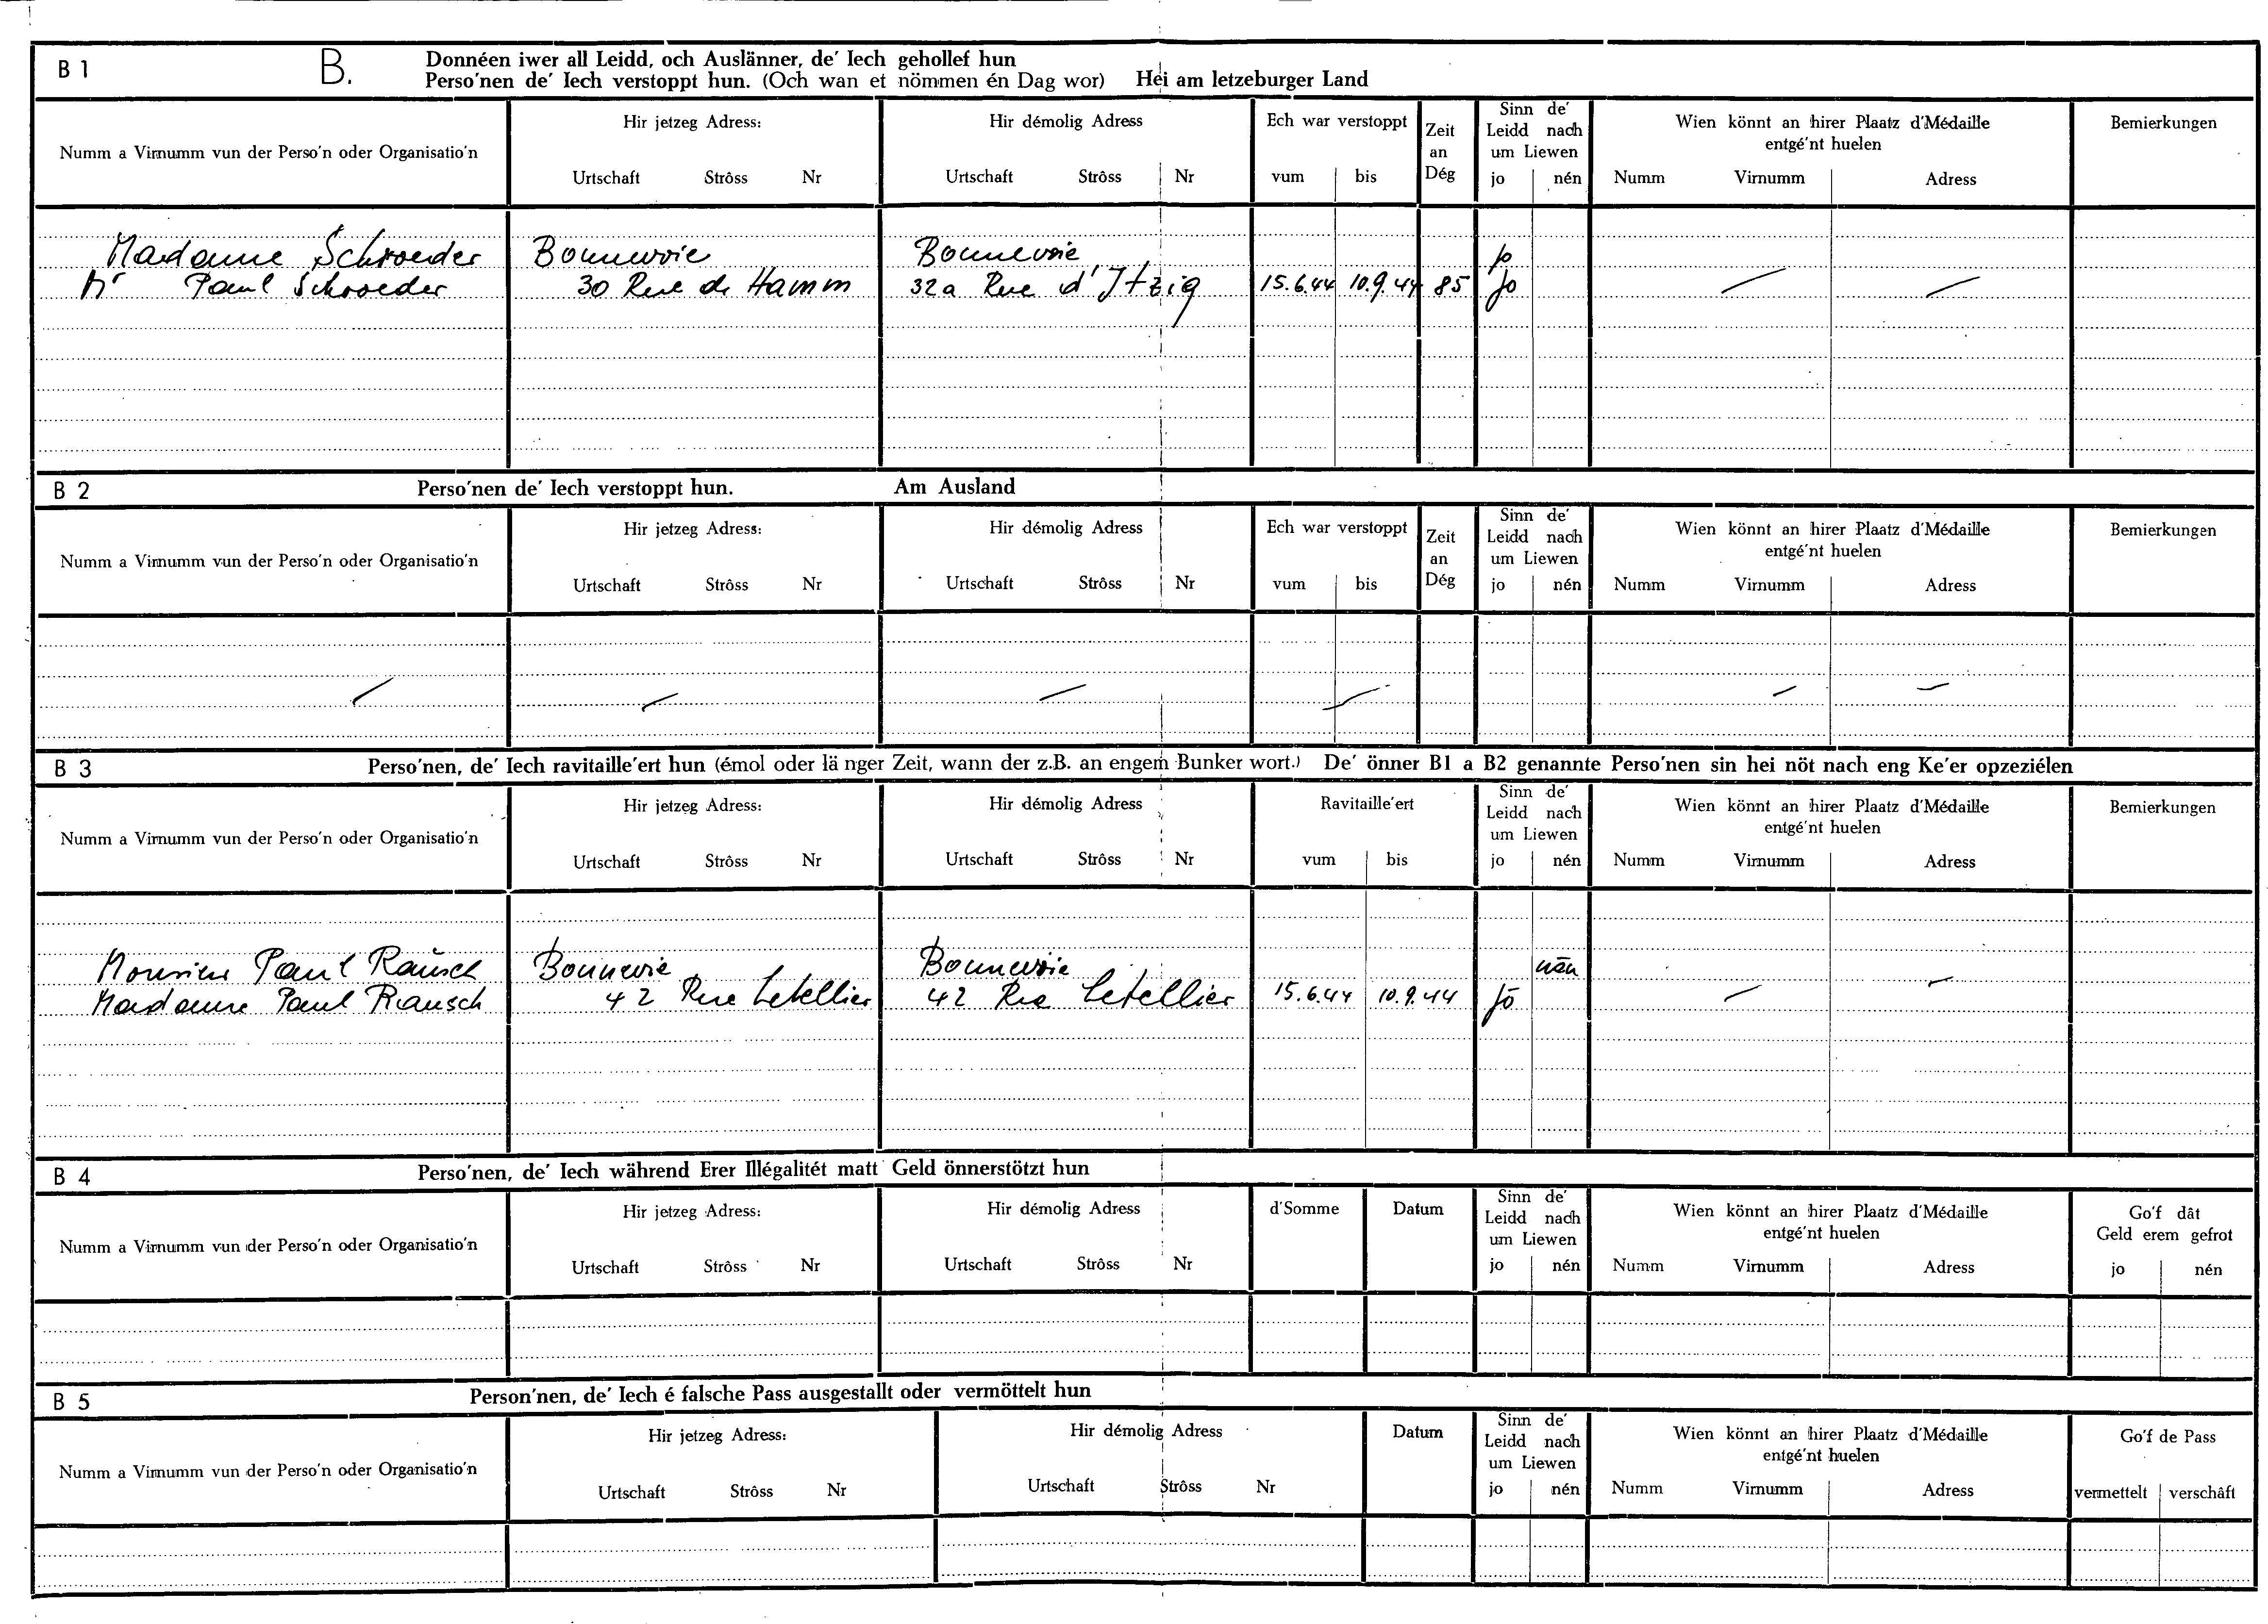 B 1 B. Donnéen iwer all Leidd, och Auslänner, de' Iech gehollef hun
Perso'nen de' Iech verstoppt hun. (Och wan et nömmen én Dag wor) Hei am letzeburger Land
Numm a Virnumm vun der Perso'n oder Organisatio'n
Hir jetzeg Adress:
Urtschaft Strôss Nr
Hir démolig Adress
Urtschaft Strôss Nr
Ech war verstoppt
vum bis
Zeit
an
Dég
Sinn de'
Leidd nach
um Liewen
jo nén
Wien könnt an hirer Plaatz d'Médaille
entgé'nt huelen
Numm Virnumm Adress
Bemierkungen
Madame Schroeder Bonnevoie Bonnevoie jo
Mr Paul Schroeder 30 Rue de Hamm 32a Rue d'Itzig 15.6.44 10.9.44 85 jo
B 2 Perso'nen de' Iech verstoppt hun. Am Ausland
Numm a Virnumm vun der Perso'n oder Organisatio'n
Hir jetzeg Adress:
Urtschaft Strôss Nr
Hir démolig Adress
Urtschaft Strôss Nr
Ech war verstoppt
vum bis
Zeit
an
Dég
Sinn de'
Leidd nach
um Liewen
jo nén
Wien könnt an hirer Plaatz d'Médaille
entgé'nt huelen
Numm Virnumm Adress
Bemierkungen
B 3 Perso'nen, de' Iech ravitaille'ert hun (émol oder länger Zeit, wann der z.B. an engem Bunker wort.) De' önner B1 a B2 genannte Perso'nen sin hei nöt nach eng Ke'er opzeziélen
Numm a Virnumm vun der Perso'n oder Organisatio'n
Hir jetzeg Adress:
Urtschaft Strôss Nr
Hir démolig Adress
Urtschaft Strôss Nr
Ravitaille'ert
vum bis
Sinn de'
Leidd nach
um Liewen
jo nén
Wien könnt an hirer Plaatz d'Médaille
entgé'nt huelen
Numm Virnumm Adress
Bemierkungen
Monsieur Paul Rausch Bonnevoie Bonnevoie nén
Madame Paul Rausch 42 Rue Letellier 42 Rue Letellier 15.6.44 10.9.44 jo
B 4 Perso'nen, de' Iech während Erer Illégalitét matt Geld önnerstötzt hun
Numm a Virnumm vun der Perso'n oder Organisatio'n
Hir jetzeg Adress:
Urtschaft Strôss Nr
Hir démolig Adress
Urtschaft Strôss Nr
d'Somme
Datum
Sinn de'
Leidd nach
um Liewen
jo nén
Wien könnt an hirer Plaatz d'Médaille
entgé'nt huelen
Numm Virnumm Adress
Go'f dât
Geld erem gefrot
jo nén
B 5 Person'nen, de' Iech é falsche Pass ausgestallt oder vermöttelt hun
Numm a Virnumm vun der Perso'n oder Organisatio'n
Hir jetzeg Adress:
Urtschaft Strôss Nr
Hir démolig Adress
Urtschaft Strôss Nr
Datum
Sinn de'
Leidd nach
um Liewen
jo nén
Wien könnt an hirer Plaatz d'Médaille
entgé'nt huelen
Numm Virnumm Adress
Go'f de Pass
vermettelt verschâft